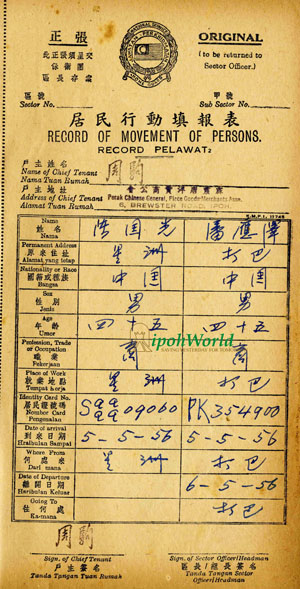 張正
ORIGINAL
此正張須呈交
(to be returned to
保衛團
Sector Officer.)
區長存案
區號
甲號
Sector No.
Sub Sector No.
居民行動填報表
RECORD OF MOVEMENT OF PERSONS.
RECORD PELAWAT2
戶主姓名
Name of Chief Tenant
Nama Tuan Rumah
周駒
戶主地址
Address of Chief Tenant
Alamat Tuan Rumah
Perak Chinese General, Piece Goods Merchants Assn.
6, BREWSTER ROAD, IPOH.
Name
姓名
Nama
Permanent Address
原來住址
Alamat yang tetap
星洲
打巴
Nationality or Race
國籍或種族
Bangsa
中国
中国
Sex
性別
Jenis
男
男
Age
年齡
Umor
四十五
四十五
Profession, Trade
or Occupation
職業
Pekerjaan
商
商
ipohWorld
Place of Work
執業地點
Tempat kerja
星洲
打巴
Identity Card No.
居民證號碼
Nombor Card
Pengenalan
PK 354900
Date of arrival
到來日期
Haribulan Sampai
5-5-56
5-5-56
Where From
何處來
Dari mana
星洲
打巴
Date of Departure
離開日期
Haribulan Keluar
6-5-56
Going To
往何處
Ka-mana
打巴
周駒
Sign. of Chief Tenant
戶主簽名
Tanda Tangan Tuan Rumah
Sign. of Sector Officer/Headman
區長/組長簽名
Tanda Tangan Sector
Officer/Headman